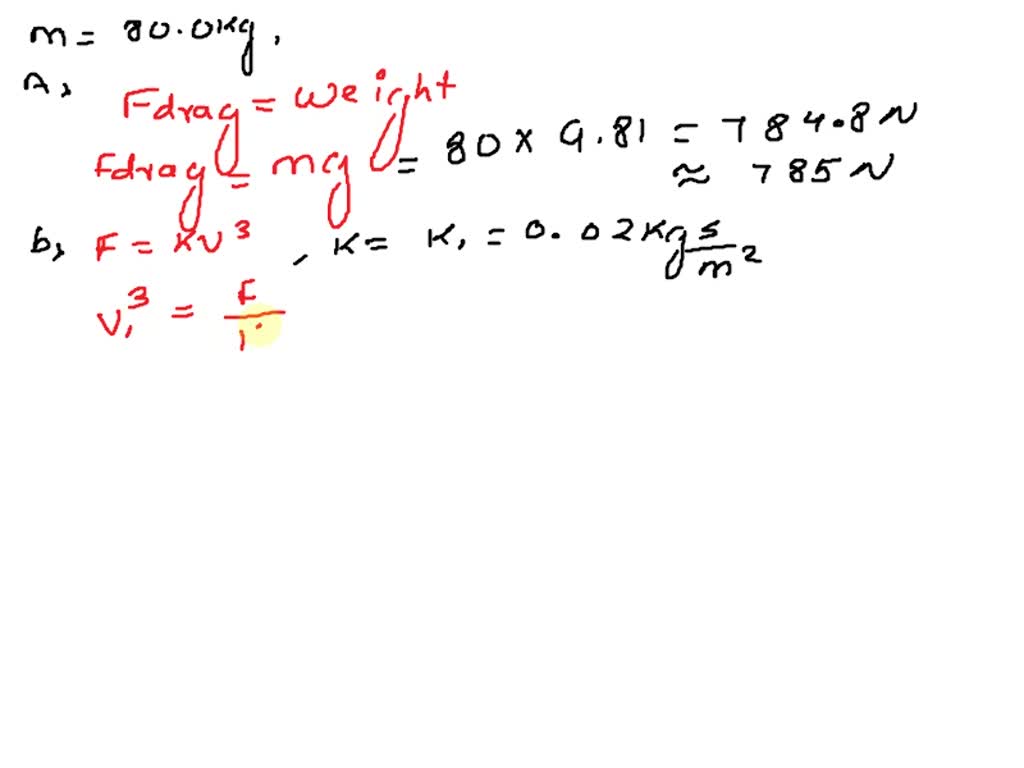 m = 80.0kg,
A,
Fdrag = weight
Fdrag = mg = 80 × 9.81 = 784.8N
≈ 785N
b, F = KV³, K = K₁ = 0.02kg s/m²
V₁³ = F/